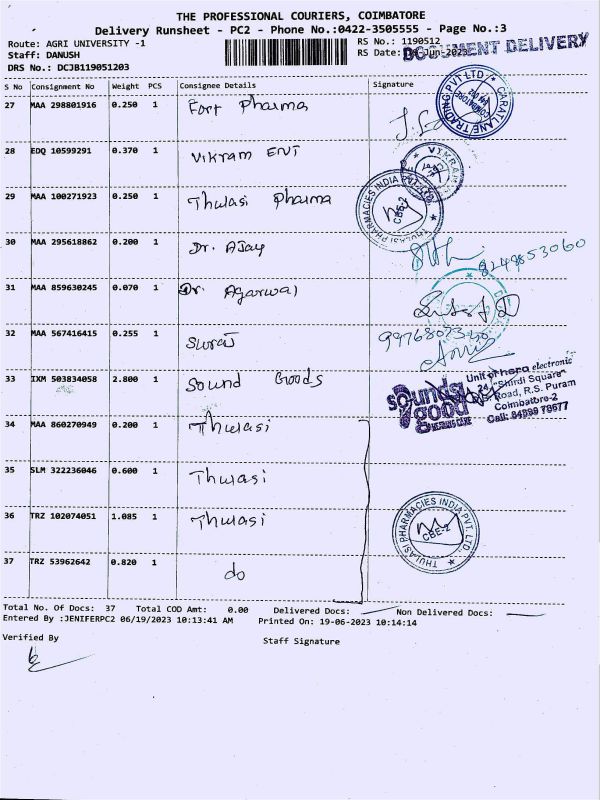 THE PROFESSIONAL COURIERS, COIMBATORE
Delivery Runsheet - PC2 - Phone No.:0422-3505555 - Page No.:3
Route: AGRI UNIVERSITY -1
RS No.: 1190512
Staff: DANUSH
RS Date: Jun-2023
DOCUMENT DELIVERY
DRS No.: DCJB119051203
S No Consignment No Weight PCS Consignee Details Signature
27 MAA 298801916 0.250 1 Fort Pharma
CARATLANE TRADING PVT LTD
COIMBATORE
28 EDQ 10599291 0.370 1 Vikram ENT
VIKRAM
29 MAA 100271923 0.250 1 Thulasi Pharma
THULASI PHARMACIES INDIA
CBE-2
30 MAA 295618862 0.200 1 Dr. AJay
8248853060
31 MAA 859630245 0.070 1 Dr. Agarwal
32 MAA 567416415 0.255 1 Suraj
33 IXM 503834058 2.800 1 Sound Goods
sounds good
HEARING CARE
Unit of hera electronic
24, "Shirdi Square"
Road, R.S. Puram
Coimbatore-2
34 MAA 860270949 0.200 1 Thulasi
35 SLM 322236046 0.600 1 Thulasi
36 TRZ 102074051 1.085 1 Thulasi
THULASI PHARMACIES INDIA PVT. LTD.
CBE-2
37 TRZ 53962642 0.820 1 do
Total No. Of Docs: 37 Total COD Amt: 0.00 Delivered Docs: Non Delivered Docs:
Entered By :JENIFERPC2 06/19/2023 10:13:41 AM Printed On: 19-06-2023 10:14:14
Verified By
Staff Signature